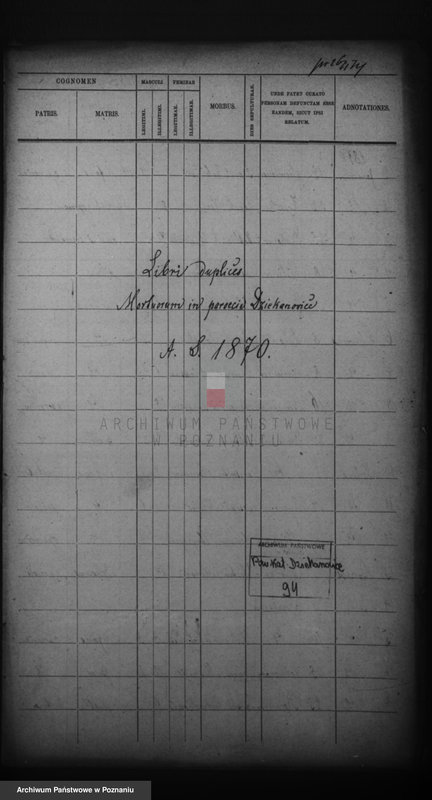 COGNOMEN
MASCULI
FEMINAE
PATRIS.
MATRIS.
LEGITIMI.
ILLEGITIMI.
LEGITIMAE.
ILLEGITIMAE.
MORBUS.
DIES SEPULTURAE.
UNDE PATET CURATO
PERSONAM DEFUNCTAM ESSE
EANDEM, SICUT IPSI
RELATUM.
ADNOTATIONES.
Libri duplices
Mortuorum in paroecia Dziekanowice
A. D. 1870.
ARCHIWUM PAŃSTWOWE
W POZNANIU
ARCHIWUM PAŃSTWOWE
Par. Kat. Dziekanowice
94
Archiwum Państwowe w Poznaniu